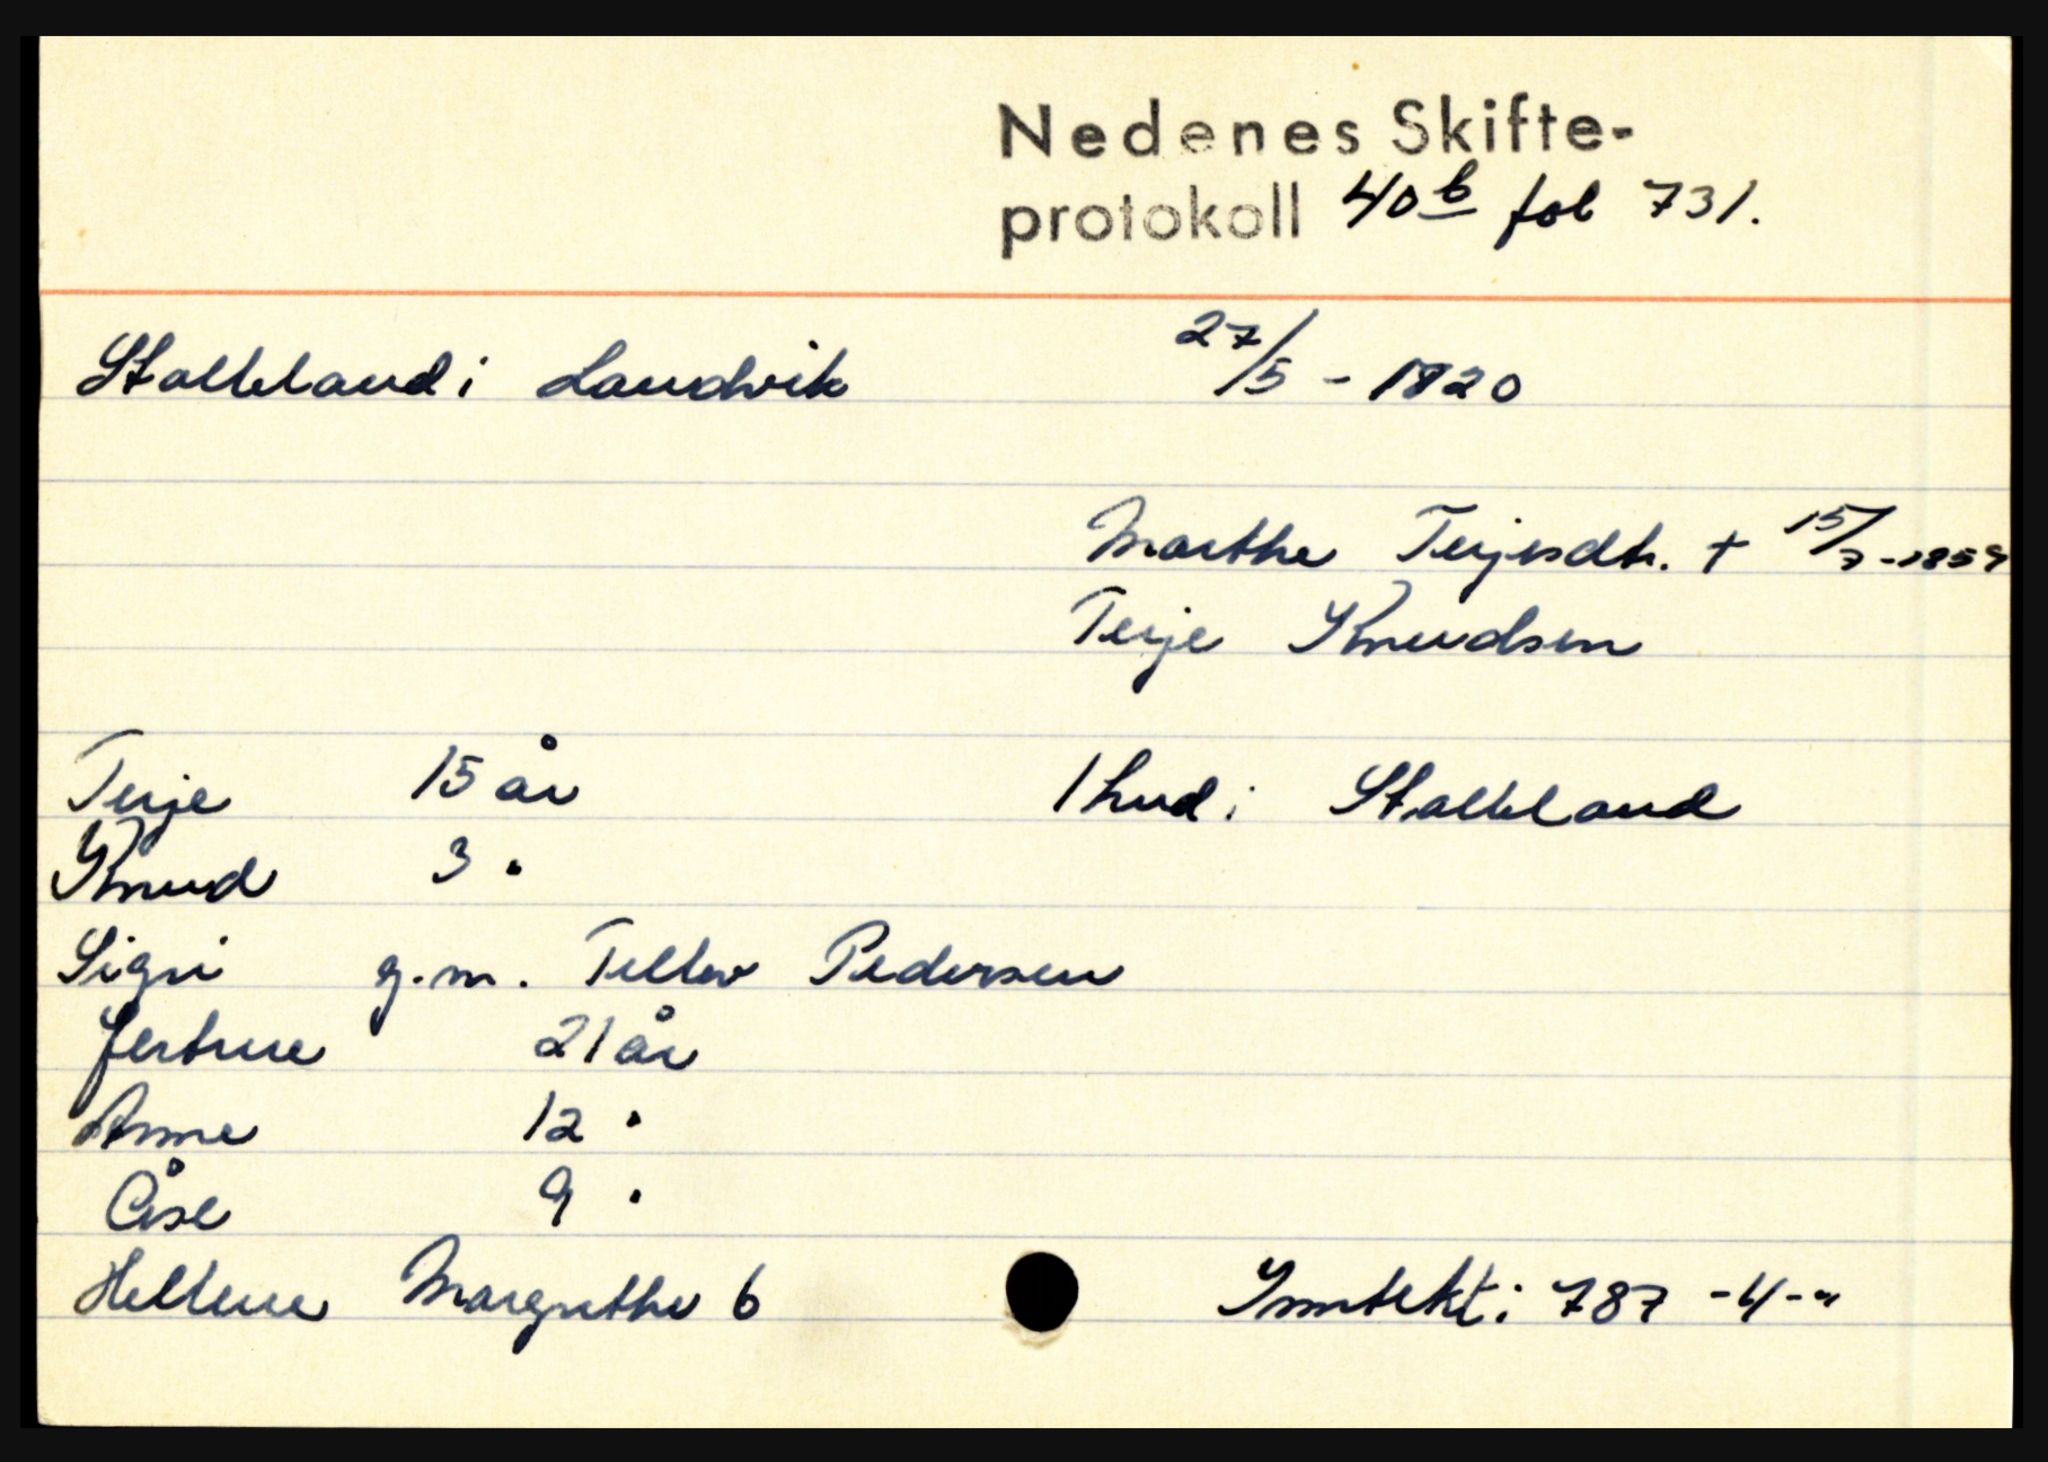 Nedenes Skifte-
protokoll 40b fol 731.
Stalleland i Landvik 27/5 - 1820
Marthe Terjesdtr. + 15/7-1859
Terje Knudsen
Terje 15 år 1 hud i Stalleland
Knud 3 "
Sigri g.m. Tellev Pedersen
Jertrue 21 år
Anne 12 "
Åse 9 "
Hellene Margrethe 6 Inntekt: 787 -4-"